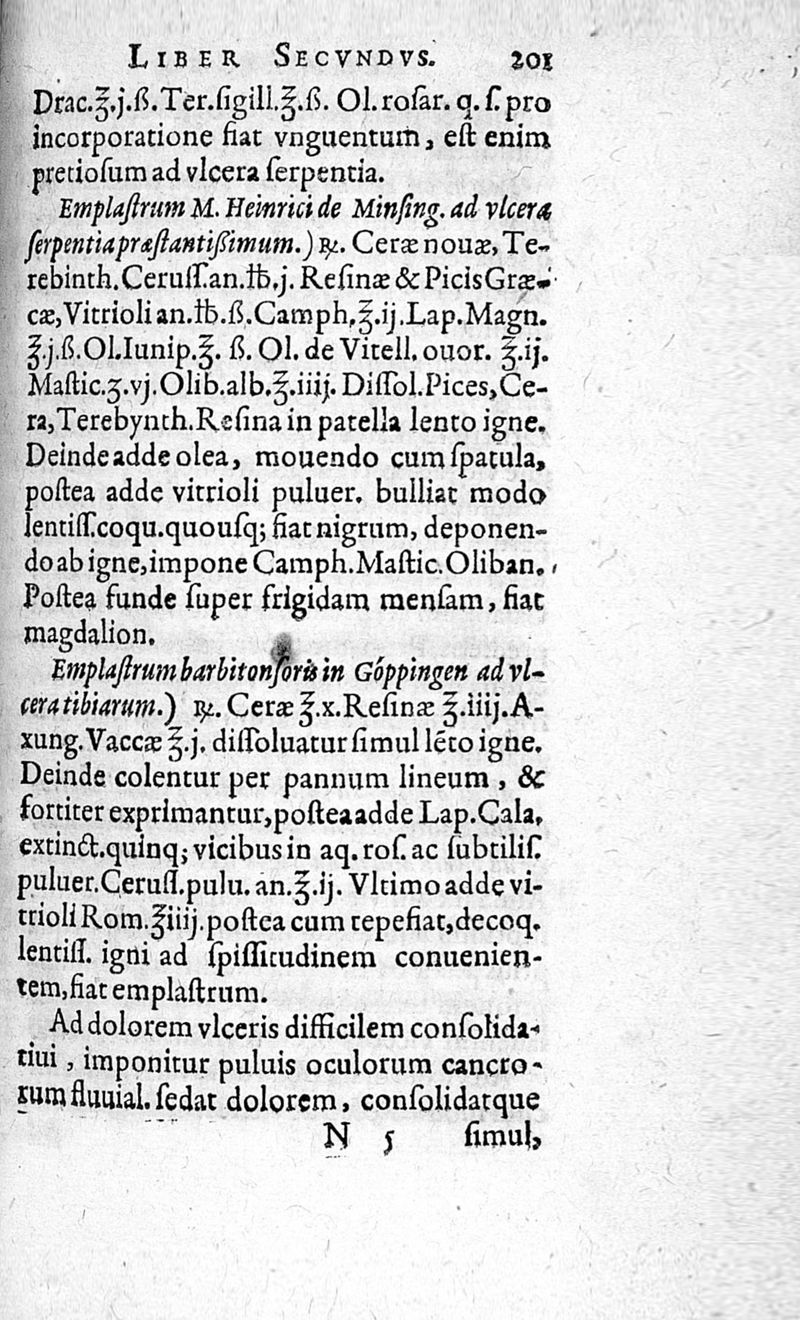 LIBER SECVNDVS. 201
Drac.℥.j.ß.Ter.ſigill.℥.ß. Ol. roſar. q. ſ. pro
incorporatione fiat vnguentum, eſt enim
pretioſum ad vlcera ſerpentia.
Emplaſtrum M. Heinrici de Minſing. ad vlcera
ſerpentia præſtantißimum.) ℞. Ceræ nouæ, Te-
rebinth.Ceruſſ.an.℔.j. Reſinæ & Picis Græ-
cæ,Vitrioli an.℔.ß.Camph.℥.ij.Lap.Magn.
℥.j.ß.Ol.Iunip.℥. ß. Ol. de Vitell. ouor. ℥.ij.
Maſtic.ʒ.vj.Olib.alb.℥.iiij. Diſſol.Pices,Ce-
ra,Terebynth.Reſina in patella lento igne.
Deinde adde olea, mouendo cum ſpatula,
poſtea adde vitrioli puluer. bulliat modo
lentiſſ.coqu.quouſq; fiat nigrum, deponen-
do ab igne,impone Camph.Maſtic.Oliban.
Poſtea funde ſuper frigidam menſam, fiat
magdalion.
Emplaſtrum barbitonſoris in Góppingen ad vl-
cera tibiarum.) ℞. Ceræ ℥.x.Reſinæ ℥.iiij.A-
xung.Vaccæ ℥.j. diſſoluatur ſimul lẽto igne.
Deinde colentur per pannum lineum, &
fortiter exprimantur,poſtea adde Lap.Cala.
extinct.quinq; vicibus in aq. roſ. ac ſubtiliſ.
puluer.Ceruſſ.pulu. an.℥.ij. Vltimo adde vi-
trioli Rom.℥iiij.poſtea cum tepefiat,decoq.
lentiſſ. igni ad ſpiſſitudinem conuenien-
tem,fiat emplaſtrum.
Ad dolorem vlceris difficilem conſolida-
tiui, imponitur puluis oculorum cancro-
rum fluuial. ſedat dolorem, conſolidatque
N 5 ſimul,